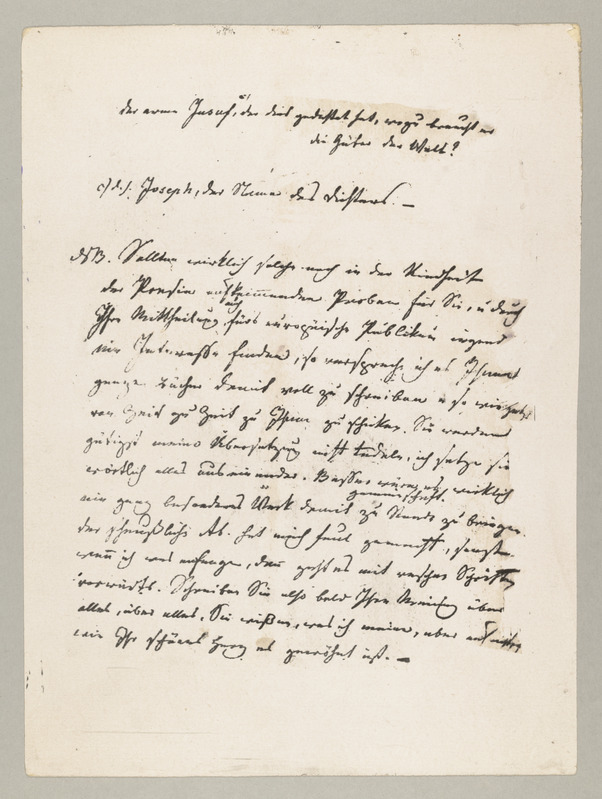 der arme Jusuf, der dies gedichtet hat, wozu braucht er
die Güter der Welt?
c) d. h. Joseph, der Name des Dichters. —
NB. Sollten wirklich solche noch in der Kindheit
der Poesie aufkeimenden Proben für Sie, u. durch
Ihre Mittheilung auch fürs europäische Publikum irgend
ein Interesse finden, so verspreche ich es Ihnen
ganze Bücher damit voll zu schreiben u. so
von Zeit zu Zeit zu Ihnen zu schicken. Sie werden
gütigst meine Übersetzung nicht tadeln, ich setze sie
wörtlich alles auseinander. Besser wäre es, wirklich
ein ganz besonderes Werk damit gemeinschaftl. zu Stande zu bringen.
Der scheußliche hat mich faul gemacht, sonst
wenn ich was anfange, dann geht es mit raschen Schritten
vorwärts. Schreiben Sie also bald Ihre Meinung über
alles, über alles, Sie wissen, was ich meine, aber
wie Ihr schönes Herz es gewöhnt ist. —